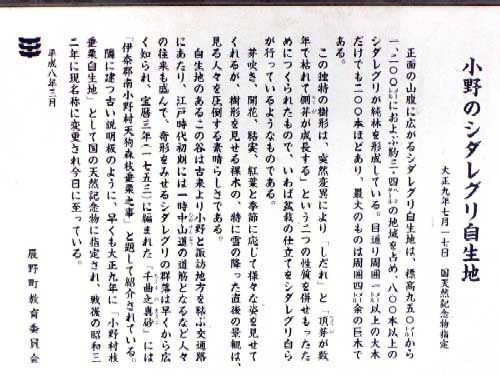 小野のシダレグリ自生地
大正九年七月一七日　国天然記念物指定
正面の山腹に広がるシダレグリ自生地は、標高九五〇㍍から
一、一〇〇㍍におよぶ約三・四㌶の地域を占め、八〇〇本以上の
シダレグリが純林を形成している。目通り周囲一㍍以上の大木
だけでも二〇〇本ほどあり、最大のものは周囲四㍍余の巨木で
ある。
この独特の樹形は、突然変異により「しだれ」と「頂芽が数
年で枯れて側芽が成長する」という二つの性質を併せもったた
めにつくられたもので、いわば盆栽の仕立てをシダレグリ自ら
が行っているようなものである。
芽吹き、開花、結実、紅葉と季節に応じて様々な姿を見せて
くれるが、樹形を見せる裸木の、特に雪の降った直後の景観は、
見る人々を圧倒する素晴らしさである。
自生地のあるこの谷は古来より小野と諏訪地方を結ぶ交通路
にあたり、江戸時代初期には一時中山道の道筋となるなど人々
の往来も盛んで、奇形をみせるシダレグリの群落は早くから広
く知られ、宝暦三年（一七五三）に編まれた「千曲之真砂」には
「伊奈郡南小野村天狗森枝垂栗之事」と題して紹介されている。
隣に建つ古い説明板のように、早くも大正九年に「小野村枝
垂栗自生地」として国の天然記念物に指定され、戦後の昭和三
二年に現名称に変更され今日に至っている。
平成八年三月
辰野町教育委員会